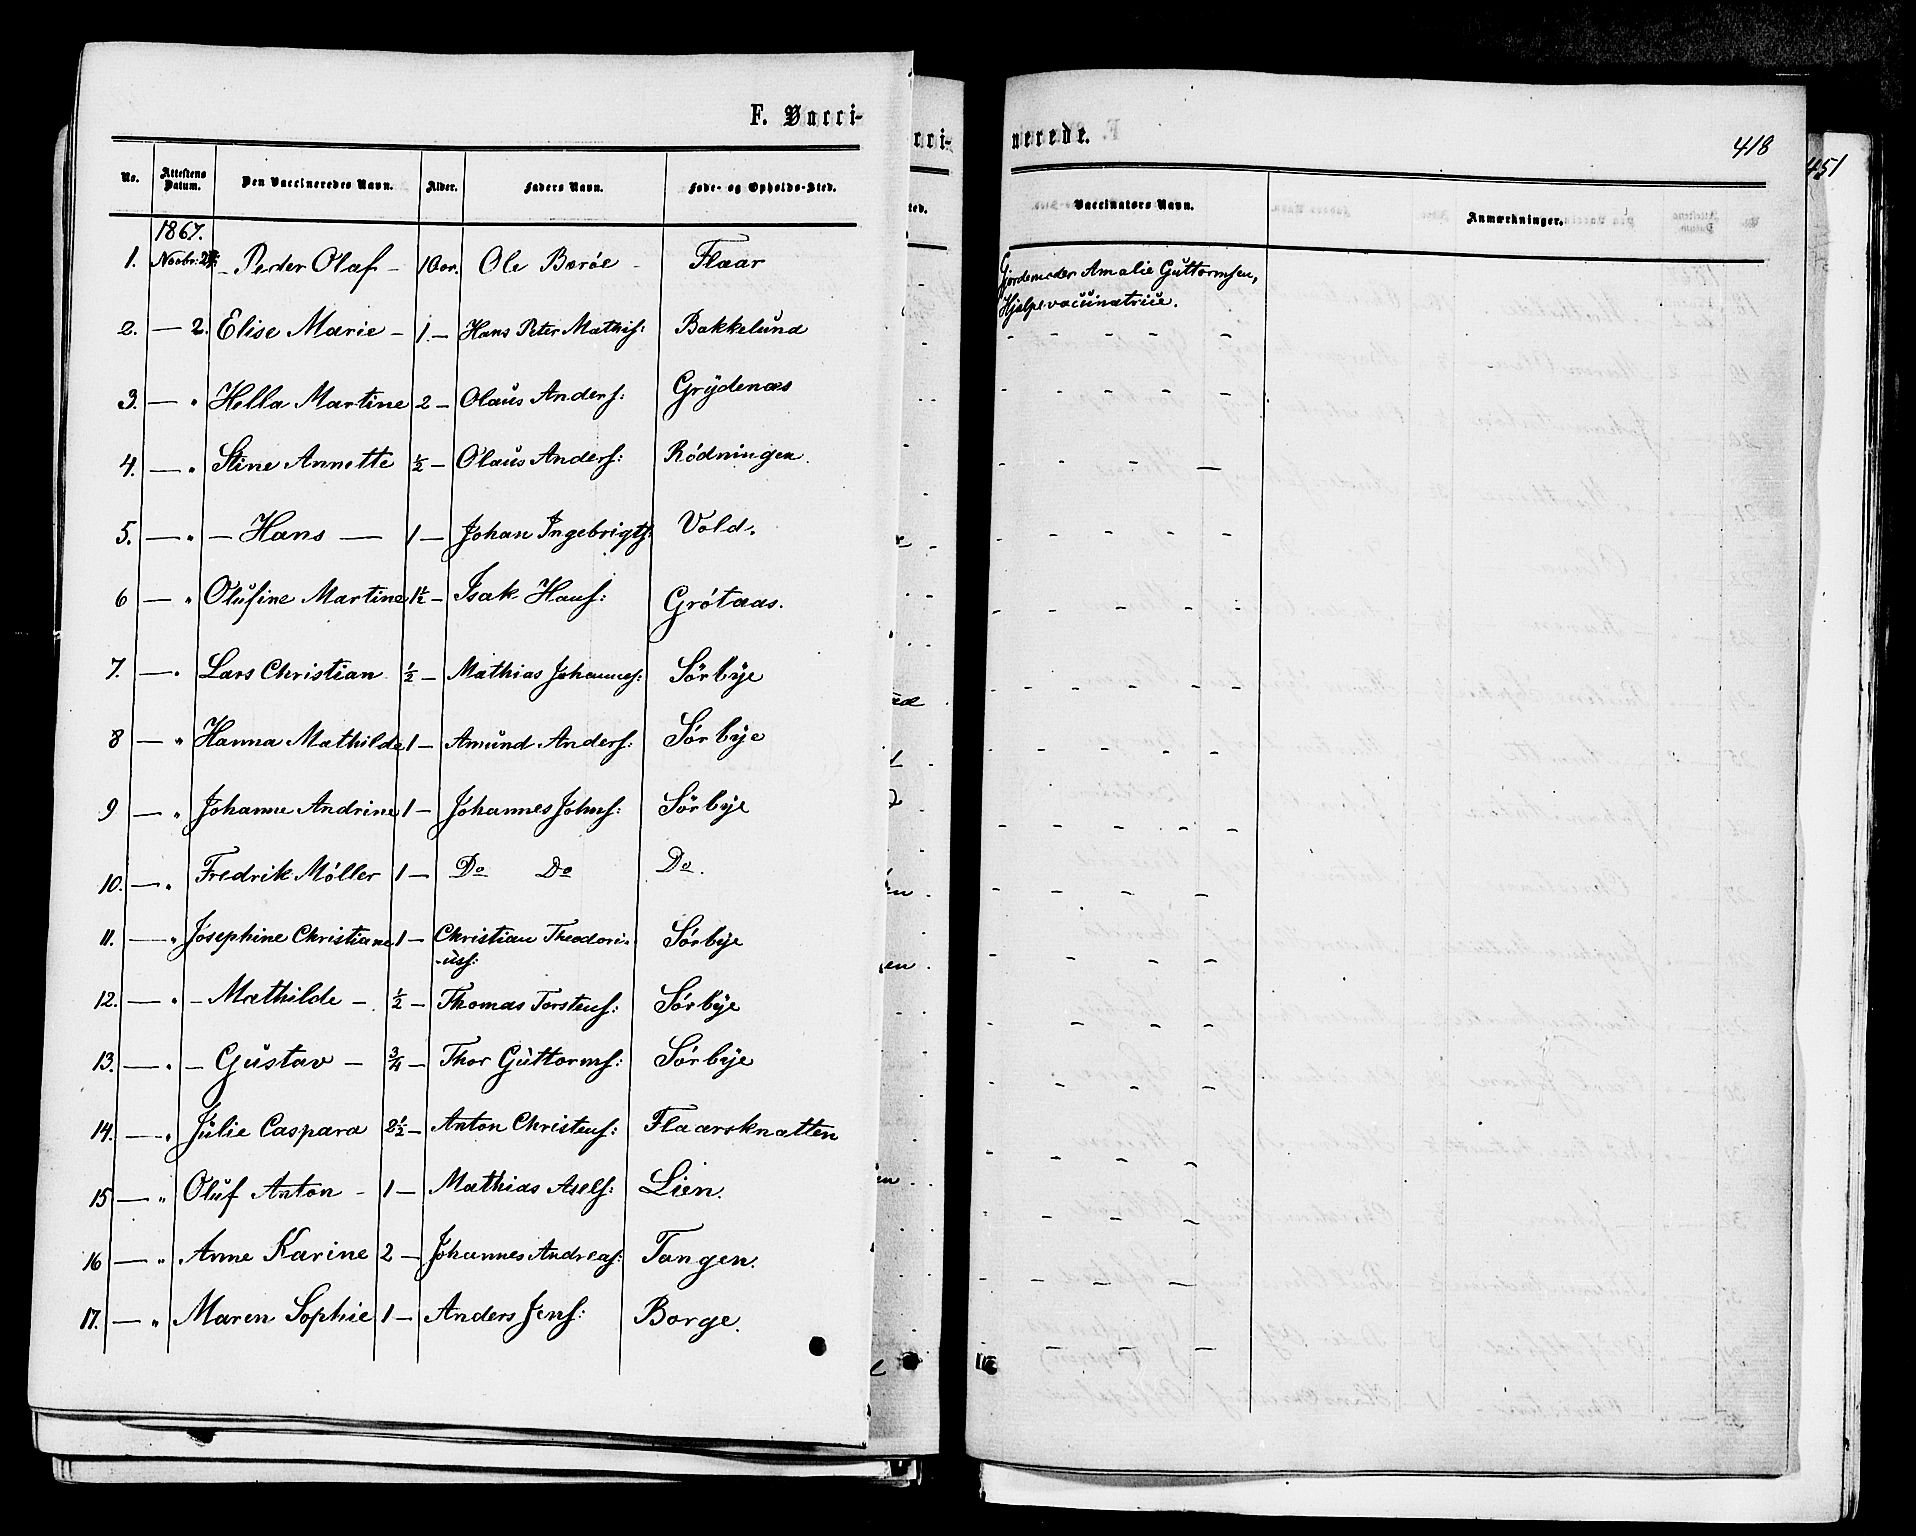 F. Vacci-
nerede.
418
451
No. Attestens Datum. Den Vaccineredes Navn. Alder. Faders Navn. Føde- og Opholds-Sted. Vaccinators Navn. Anmærkninger.
1867.
1. Novbr: Peder Olaf - 1 Oле Børøe - Flaar Gjordemoder Amalie Guttormsen,
Hjelpevaccinatrice.
2. — 2. Elise Marie - 1 — Hans Peter Mathis: Bakkelund
3. — " Hella Martine 2 — Olaus Anders: Grydenæs
4. — " Stine Annette ½ — Olaus Anders: Rödningen.
5. — " — Hans — 1 — Johan Ingebrigts: Vold.
6 — " Olufine Martine 1½ — Isak Hans: Grötaas.
7. — " Lars Christian ½ — Mathias Johannes: Sörbye
8 — " Hanna Mathilde 1 — Amund Anders: Sörbye
9 — " Johanne Andrine 1 — Johannes Johns: Sörbye
10. — " Fredrik Möller 1 — Do Do Do.
11. — " Josephine Christiane 1 — Christian Theodori-
-us:
Sörbye
12. — " - Mathilde - ½ — Thomas Torstens: Sörbye
13. — " - Gustav - ¾ — Thor Guttorms: Sörbye
14. — " Julie Caspara 2½ — Anton Christens: Flaarsknatten
15 — " Oluf Anton - 1 — Mathias Axels: Lien.
16 — " Anne Karine 2 — Johannes Andreas: Tangen.
17. — " Maren Sophie 1 — Anders Jens: Borge.